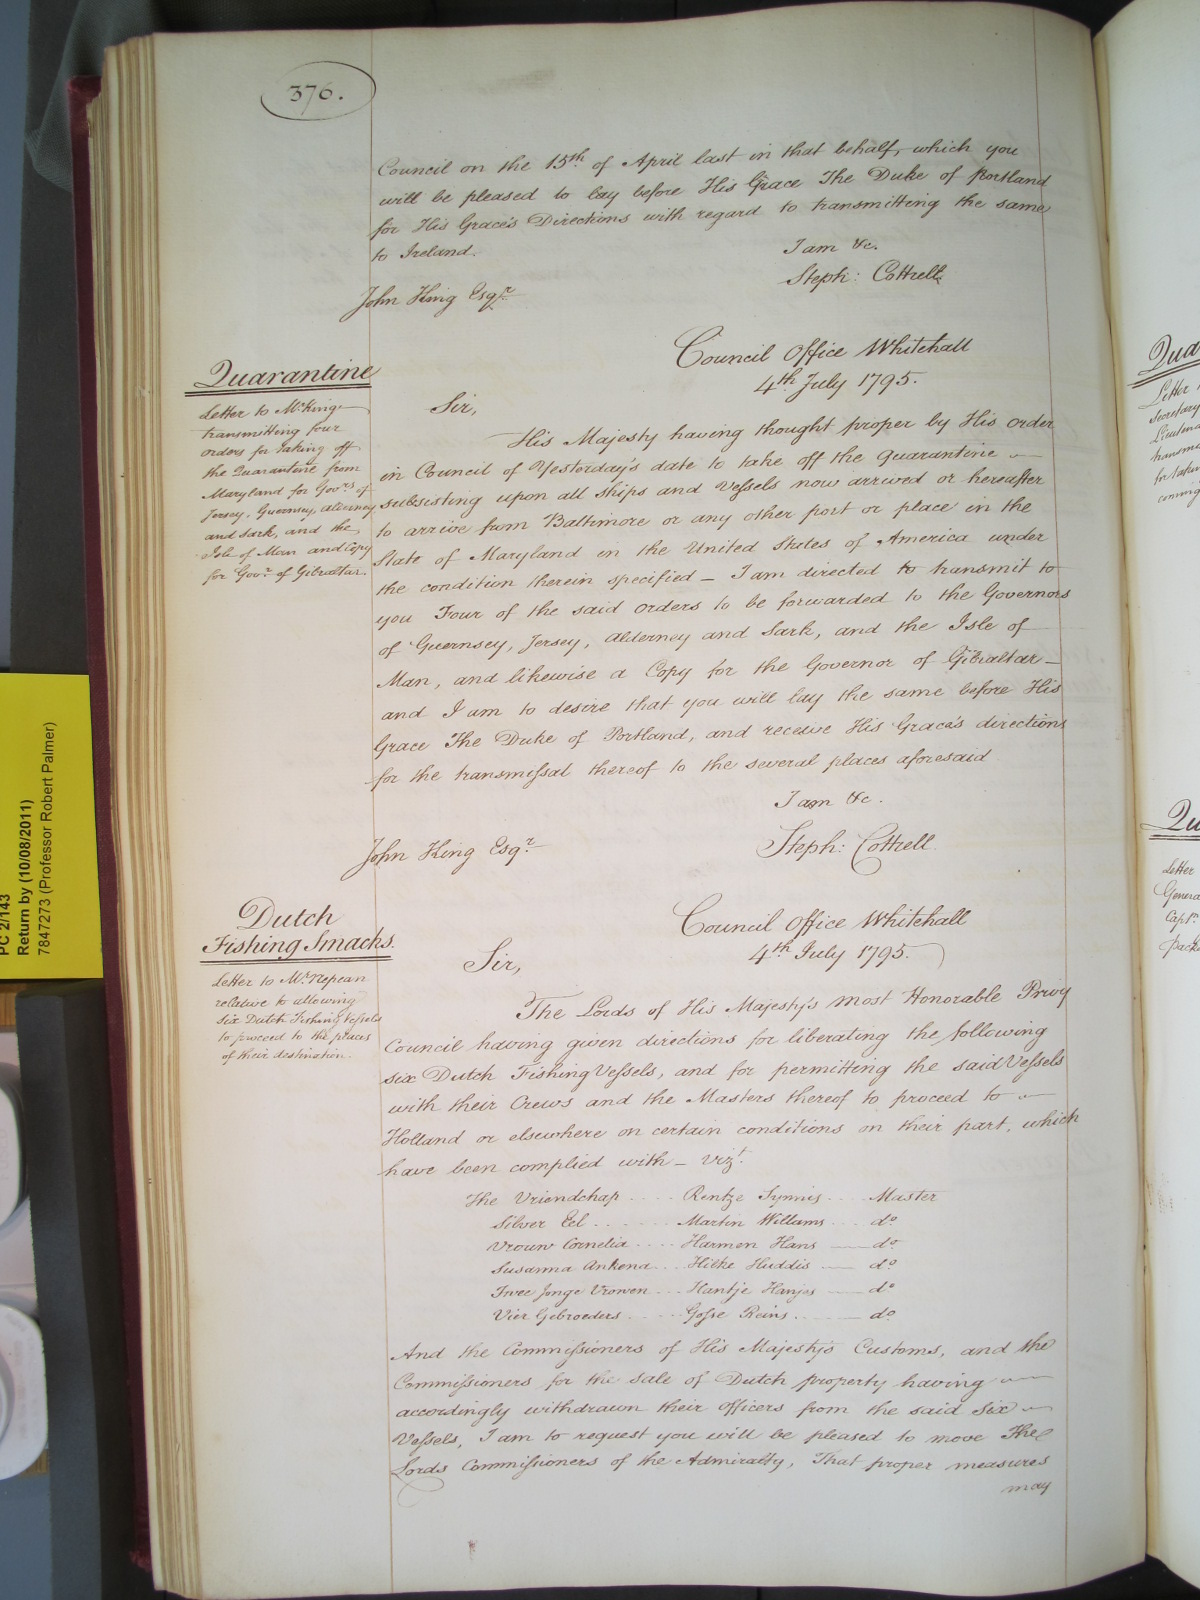 376.
Council on the 15th of April last in that behalf, which you
will be pleased to lay before His Grace The Duke of Portland
for His Grace's Directions with regard to transmitting the same
to Ireland.
I am &c.
Steph: Cottrell
John King Esqr.
Quarantine
Letter to Mr. King
transmitting four
orders for taking off
the Quarantine from
Maryland for Govrs. of
Jersey, Guernsey, Alderney
and Sark, and the
Isle of Man and Copy
for Govr. of Gibraltar.
Council Office Whitehall
4th July 1795.
Sir,
His Majesty having thought proper by His Order
in Council of Yesterday's date to take off the Quarantine
subsisting upon all Ships and Vessels now arrived or hereafter
to arrive from Baltimore or any other port or place in the
State of Maryland in the United States of America under
the condition therein specified – I am directed to transmit to
you Four of the said Orders to be forwarded to the Governors
of Guernsey, Jersey, Alderney and Sark, and the Isle of
Man, and likewise a Copy for the Governor of Gibraltar –
and I am to desire that you will lay the same before His
Grace The Duke of Portland, and receive His Grace's directions
for the transmissal thereof to the several places aforesaid
I am &c.
Steph: Cottrell.
John King Esqr.
Dutch
Fishing Smacks.
Letter to Mr. Nepean
relative to allowing
six Dutch Fishing Vessels
to proceed to the places
of their destination.
Council Office Whitehall
4th July 1795.
Sir,
The Lords of His Majesty's most Honorable Privy
Council having given directions for liberating the following
six Dutch Fishing Vessels, and for permitting the said Vessels
with their Crews and the Masters thereof to proceed to
Holland or elsewhere on certain conditions on their part, which
have been complied with – vizt.
The Vriendchap .... Rentze Symnis .... Master
Silver Eel ...... Martin Willams ... do.
Vrouw Cornelia .... Harmen Hans — do.
Susanna Ankena ... Hilke Huddis — do.
Twee Jonge Vrowen ... Hantje Hanjes — do.
Vier Gebroeders .... Gosse Reins ... — do.
And the Commissioners of His Majesty's Customs, and the
Commissioners for the sale of Dutch property having
accordingly withdrawn their Officers from the said Six
Vessels, I am to request you will be pleased to move The
Lords Commissioners of the Admiralty, That proper measures
may
PC 2/143
Return by (10/08/2011)
7847273 (Professor Robert Palmer)
Letter
Secretary
for taking
coming
Letter
Capt.